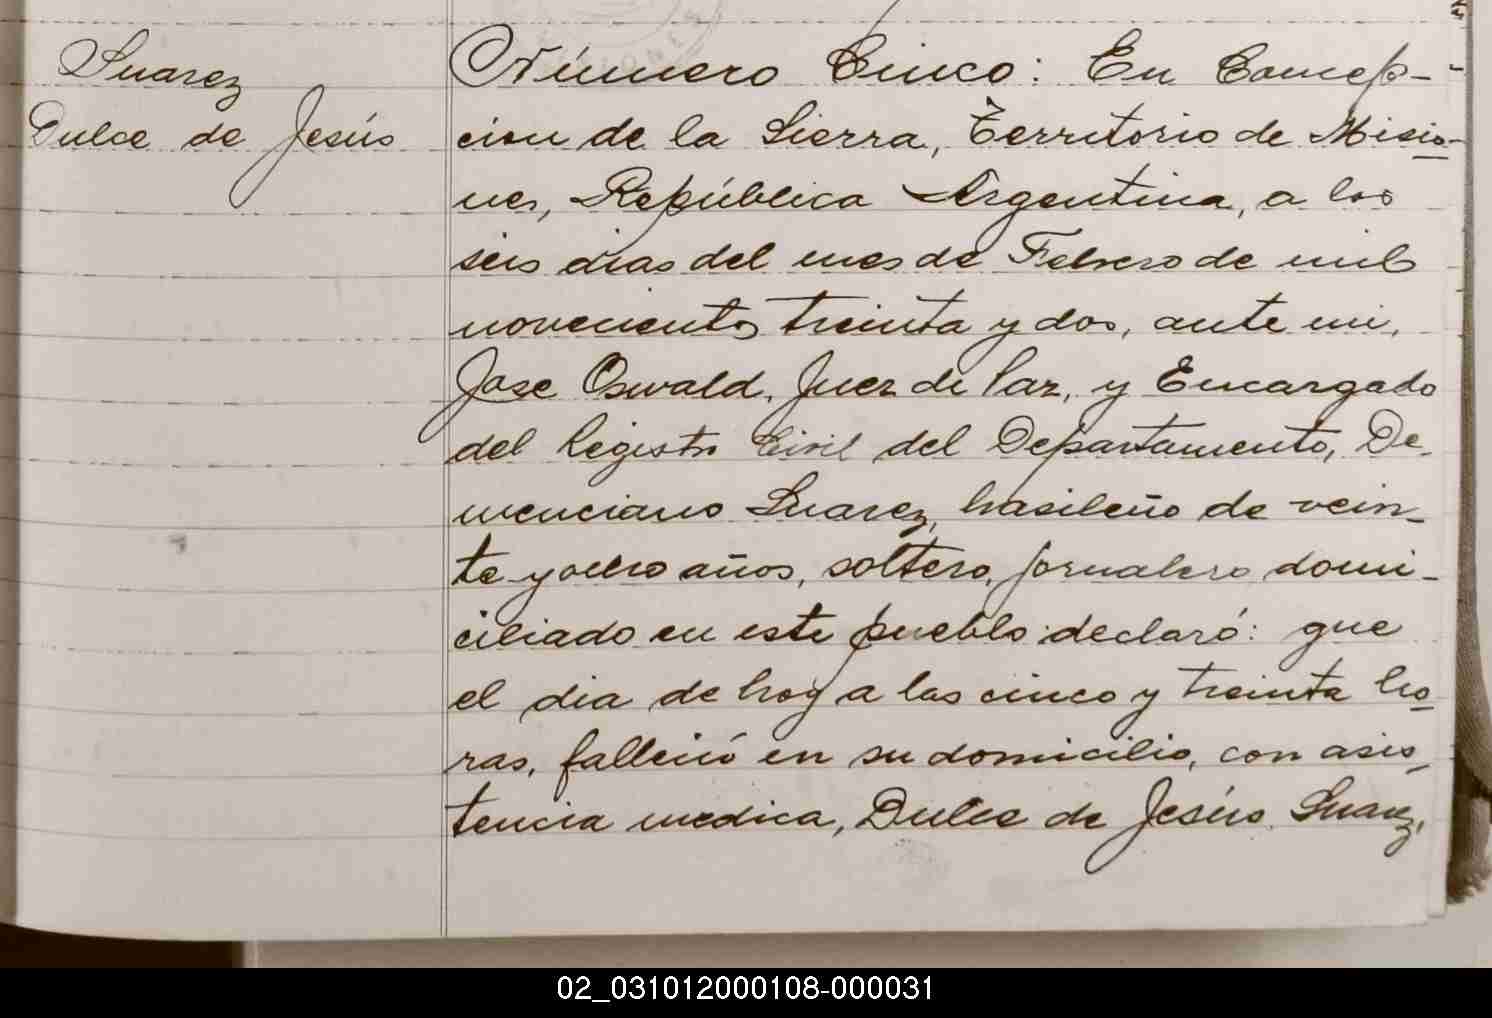 Suarez
Dulce de Jesús
Número Cinco: En Concep-
cion de la Sierra, Territorio de Misio-
nes, República Argentina, a los
seis dias del mes de Febrero de mil
novecientos treinta y dos, ante mi,
Jose Oswald, Juez de Paz, y Encargado
del Registro Civil del Departamento, De-
menciano Suarez, brasileño de vein-
te y ocho años, soltero, jornalero domi-
ciliado en este pueblo declaró: que
el dia de hoy a las cinco y treinta ho-
ras, falleció en su domicilio, con asis-
tencia medica, Dulce de Jesús Suarez,
02_031012000108-000031